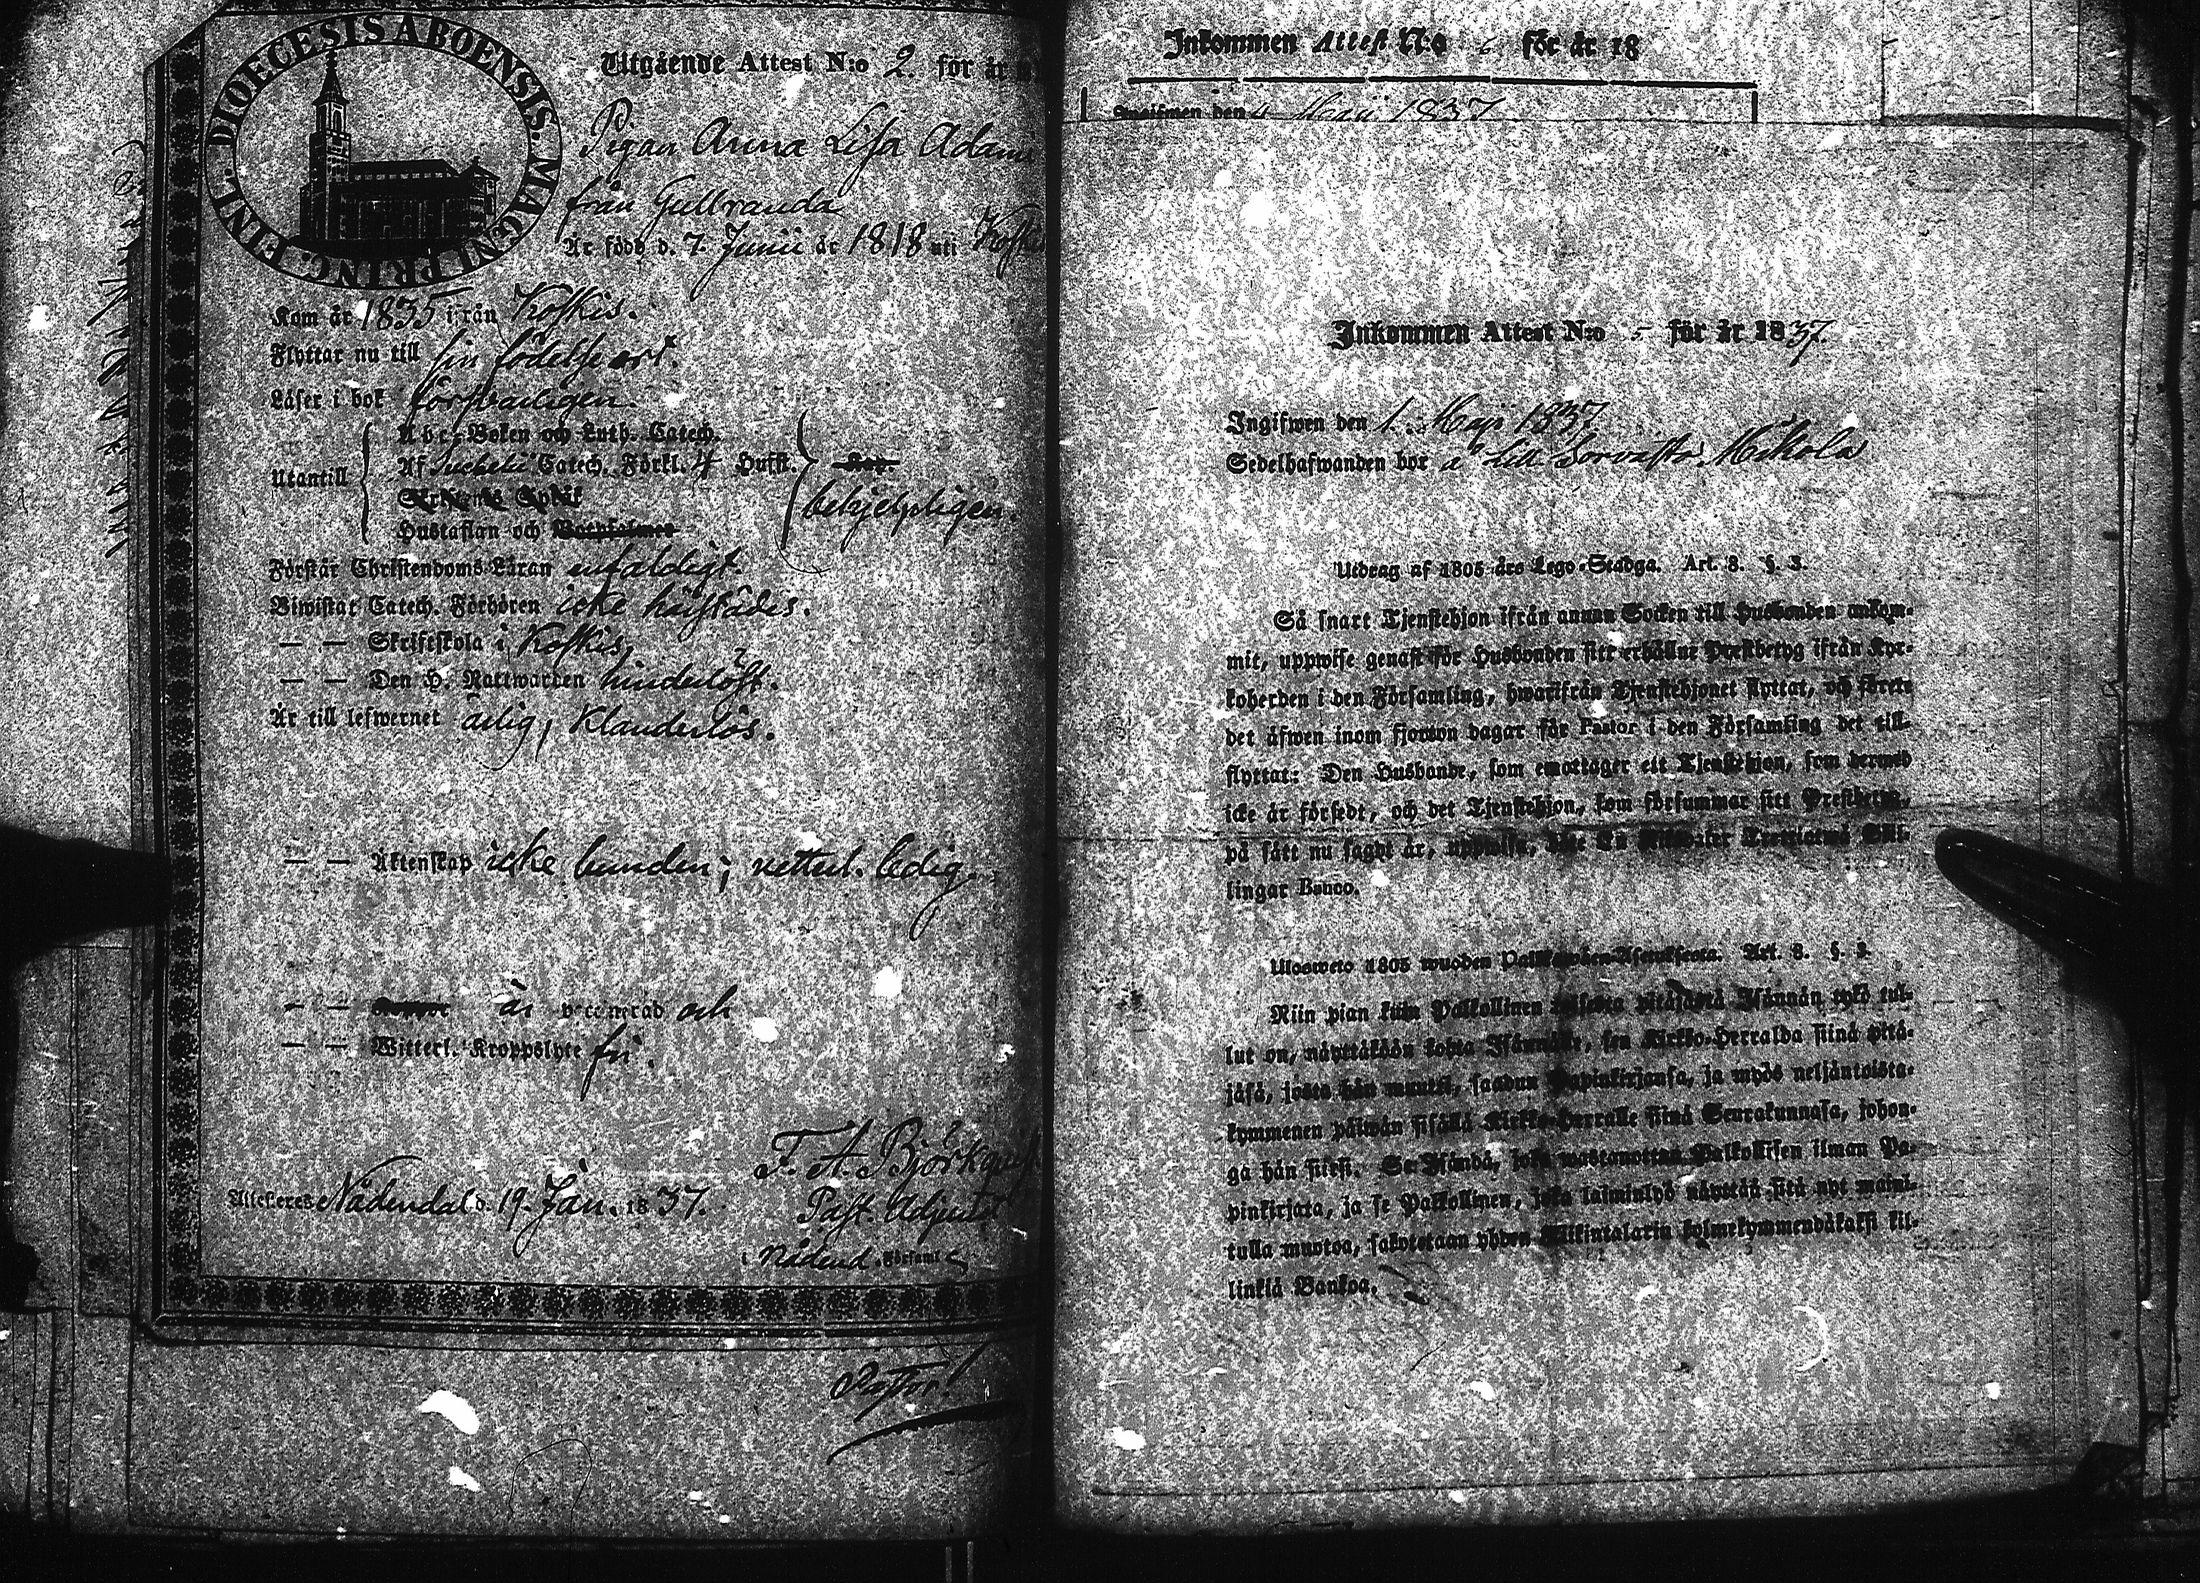 DIOECESIS ABOENSIS. MAGNI PRINC. FINL.
Utgående Attest N:o 2. för år
Pigan Anna Lisa Adams
från Gullranda
Är född d. 7. Junii år 1818 uti Koskis
Kom år 1835 ifrån Koskis.
Flyttar nu till sin födelse ort.
Läser i bok försvarligen.
Utantill
Abc-Boken och Luth. Catech.
Af Svebelii Catech. Förkl. 4 Hufst.
Hustaflan och
behjelpligen.
Förstår Christendoms Läran enfaldigt.
Biwistat Catech. Förhören icke härstädes.
— — Skriftskola i Koskis,
— — Den H. Nattwarden hinderlöst.
Är till lefwernet ärlig, klanderlös.
— — Äktenskap icke bunden; ledig.
— — är vaccinerad och
— — Witterl. Kroppslyte fri.
F. A. Björkqvist
Attesteras Nådendal d. 19. Jan. 1837.
Past. Adjunct
i Nådend. Församl
Pastor.
Inkommen Attest N:o 6 för år 18
Ingifwen den 4 Maji 1837
Inkommen Attest N:o 5 för år 1837.
Ingifwen den 1. Maji 1837
Sedelhafwanden bor å Lill Sorvasto Mikola
Utdrag af 1805 års Lego-Stadga. Art. 8. §. 3.
Så snart Tjenstehjon ifrån annan Socken till Husbonden ankom-
mit, uppwise genast för Husbonden sitt erhållne Prestbetyg ifrån Kyr-
koherden i den Församling, hwarifrån Tjenstehjonet flyttat, och förete
det äfwen inom fjorton dagar för Pastor i den Församling det till-
flyttat: Den Husbonde, som emottager ett Tjenstehjon, som dermed
icke är försedt, och det Tjenstehjon, som försummar sitt Prestbetyg,
på sätt nu sagdt är, uppwisa, böte En Riksdaler Trettiotwå Skil-
lingar Banco.
Ulosweto 1805 wuoden Palkkawäen-Asetuksesta. Art. 8. §. 3.
Niin pian kuin Palkollinen toisesta pitäjästä Isännän tykö tul-
lut on, näyttäköön kohta Isännälle, sen Kirkko-Herralda siinä pitä-
jäsä, josta hän muutti, saadun Papinkirjansa, ja myös neljäntoista-
kymmenen päiwän sisällä Kirkko-Herralle siinä Seurakunnasa, johon-
ga hän siirsi. Se Isändä, joka wastanottaa Palkollisen ilman Pa-
pinkirjata, ja se Palkollinen, joka laiminlyö näyttää sitä nyt maini-
tulla muotoa, sakotetaan yhden Riikintalarin kolmekymmendäkaksi kil-
linkiä Bankoa.